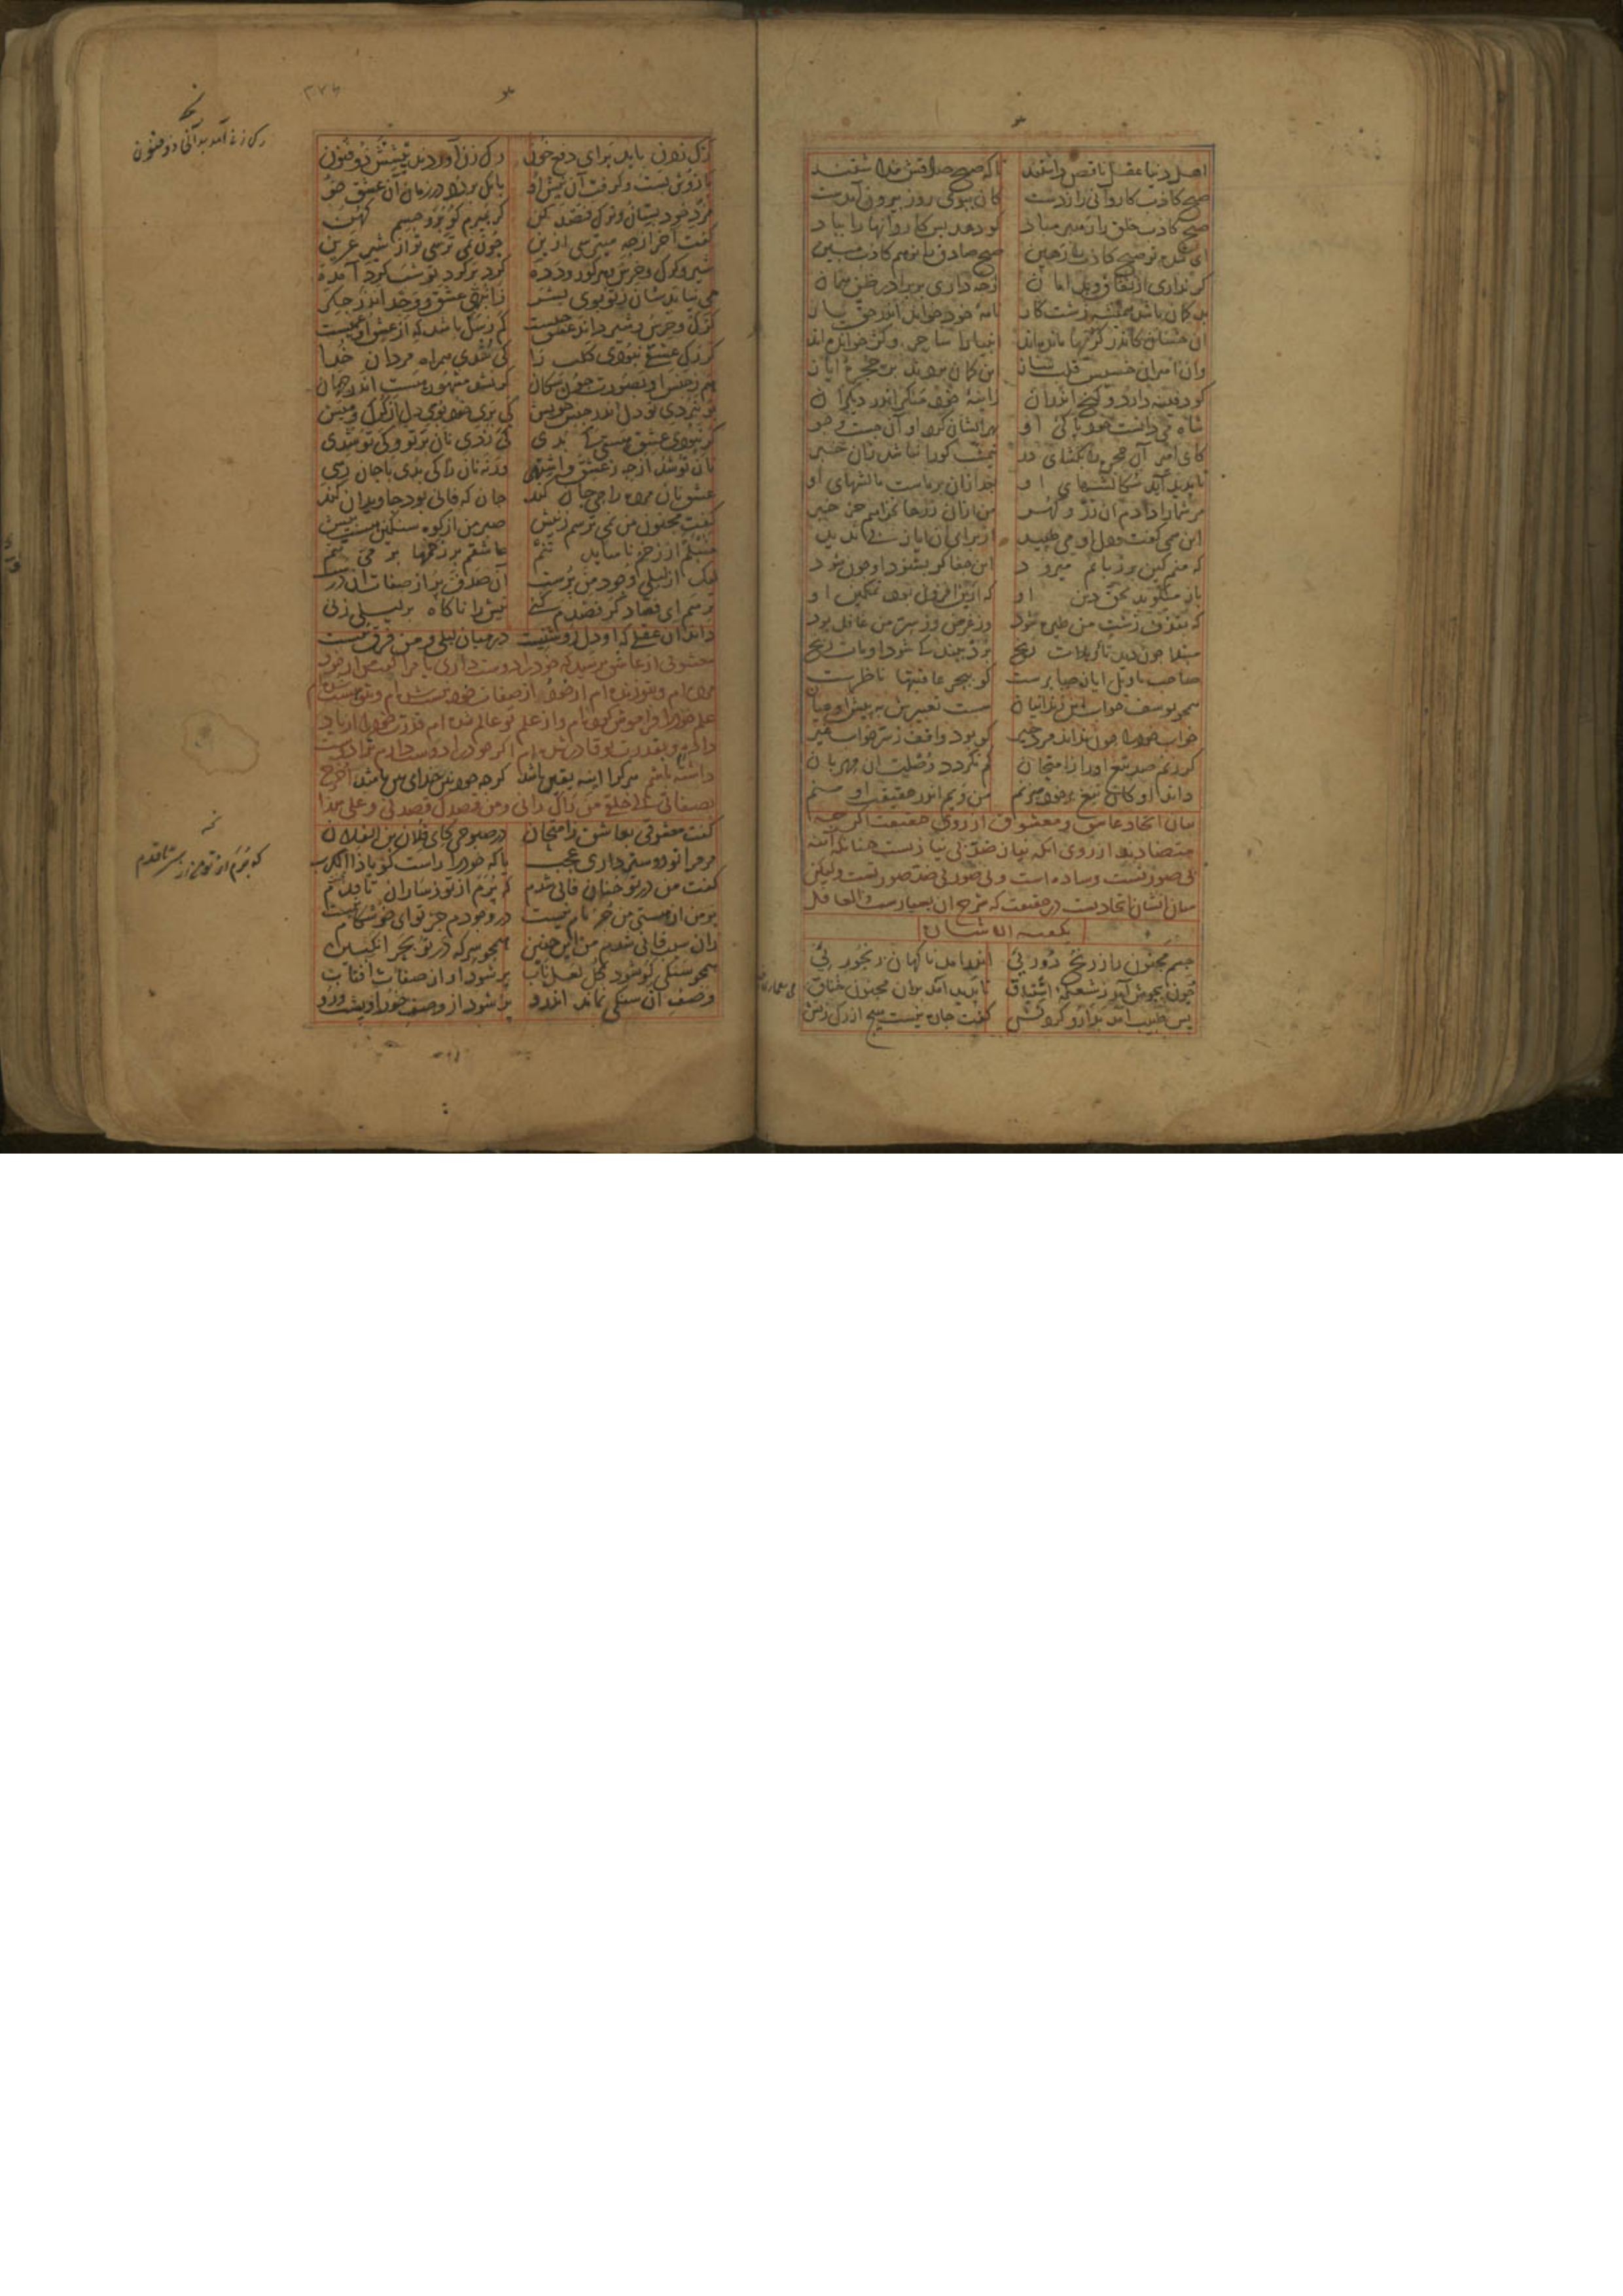 اهل دنیا عقل ناقص داشتند تا که صبح صادقش پنداشتند
صبح کاذب کاروانی را زدست کان ببوی روز بیرون آمدست
صبح کاذب خلق را رهبر مباد کو دهد بس کاروانها را بباد
ای شده تو صبح کاذب را رهین صبح صادق را تو هم کاذب مبین
گر نداری از نفاق و بد امان از چه داری بر برادر ظن همان
بد گمان باشد همیشه زشت کار نامهٔ خود خواند اندر حق یار
آن خسان کاندر کژیها مانده اند انبیا را ساحر و کژ خوانده اند
وان امیران خسیس قلب ساز این گمان بردند بر حجرهٔ ایاز
کو دفینه دارد و گنج اندر آن زاینهٔ خود منگر اندر دیگران
شاه می دانست خود پاکی او بهر ایشان کرد او آن جست و جو
کای امیر آن حجره را بگشای در نیمشب کورا نباشد زان خبر
تا پدید آید سگالشهای او بعد ازان بر ماست مالشهای او
مر شما را دادم آن زر و گهر من ازان زرها نخواهم جز خبر
این همی گفت و دل او می طپید از برای آن ایاز بی ندید
که منم کین بر زبانم میرود این جفا گر بشنود او چون شود
باز میگوید بحق دین او که ازین افزون بود تمکین او
که بقذف زشت من طیره شود وز غرض وز سر من غافل بود
مبتلا چون دید تاویلات رنج برد بیند کی شود او مات رنج
صاحب تاویل ایاز صابرست کو ببحر عاقبتها ناظرست
همچو یوسف خواب این زندانیان هست تعبیرش به پیش او عیان
خواب خود را چون نداند مرد خیر کو بود واقف ز سر خواب غیر
گر زنم صد تیغ او را ز امتحان کم نگردد وصلت آن مهربان
داند او کان تیغ بر خود میزنم من ویم اندر حقیقت او منم
بیان اتحاد عاشق و معشوق از روی حقیقت اگر چه
متضادند از روی آنکه نیاز ضد بی نیازیست چنانکه آینه
بی صورتست و ساده است و بی صورتی ضد صورتست ولیکن
میان ایشان اتحادیست در حقیقت که شرح آن بسیارست و العاقل
یکفیه الاشارة
جسم مجنون را ز رنج دوریی اندر آمد ناگهان رنجوریی
خون بجوش آمد ز شعلهٔ اشتیاق تا پدید آمد بران مجنون خناق
پس طبیب آمد بدارو کردنش گفت چاره نیست هیچ از رگ زنش
رگ زدن باید برای دفع خون رگ زن آوردند پیشش ذو فنون
بازوش بست و گرفت آن نیش او بانگ بر زد در زمان آن عشق خو
مزد خود بستان و ترک فصد کن گر بمیرم گو برو جسم کهن
گفت آخر از چه میترسی ازین چون نمی ترسی تو از شیر عرین
شیر و گرگ و خرس و هر گور و دده گرد بر گرد تو شب گرد آمده
می نیاید شان ز تو بوی بشر ز انبهی عشق و وجد اندر جگر
گرگ و خرس و شیر داند عشق چیست کم ز سگ باشد که از عشق او عمیست
گر رگ عشقی نبودی کلب را کی بجستی همراه مردان خدا
هم ز جنس او بصورت چون سگان گر نشد مشهور هست اندر جهان
بو نبردی تو دل اندر جنس خویش کی بری تو بوی دل از گرگ و میش
گر نبودی عشق هستی کی بدی کی زدی نان بر تو و کی تو شدی
نان تو شد از چه ز عشق و اشتها ورنه نان را کی بدی با جان رهی
عشق نان مرده را می جان کند جان که فانی بود جاویدان کند
گفت مجنون من نمی ترسم ز نیش صبر من از کوه سنگین هست بیش
منبلم از زخم ناساید تنم عاشقم بر زخمها بر می تنم
لیک از لیلی وجود من پرست این صدف پر از صفات آن درست
ترسم ای فصاد گر فصدم کنی نیش را ناگاه بر لیلی زنی
داند آن عقلی که او دل روشنیست در میان لیلی و من فرق نیست
معشوقی از عاشق پرسید که خود را دوست داری یا مرا گفت من از خود
مرده ام و بتو زنده ام از خود و از صفات خود نیست شده ام و بتو هست شده ام
علم خود را فراموش کرده ام و از علم تو عالم شده ام قدرت خود را از یاد
داده ام و بقدرت تو قادر شده ام اگر خود را دوست دارم ترا دوست
داشته باشم هر کرا آینه یقین باشد گر چه خود بین خدای بین باشد اخرج
بصفاتی الی خلقی من رآک رآنی و من قصدک قصدنی و علی هذا
گفت معشوقی بعاشق ز امتحان در صبوحی کای فلان بن الفلان
مر مرا تو دوستر داری عجب یا که خود را راست گو یا ذا الکرب
گفت من در تو چنان فانی شدم که پرم از تو ز ساران تا قدم
بر من از هستی من جز نام نیست در وجودم جز تو ای خوش کام نیست
زان سبب فانی شدم من این چنین همچو سرکه در تو بحر انگبین
همچو سنگی کو شود کل لعل ناب پر شود او از صفات آفتاب
وصف آن سنگی نماند اندرو پر شود از وصف خور او پشت و رو
رگ زنی آمد بدانجا ذو فنون
که پرم از تو من از سر تا قدم